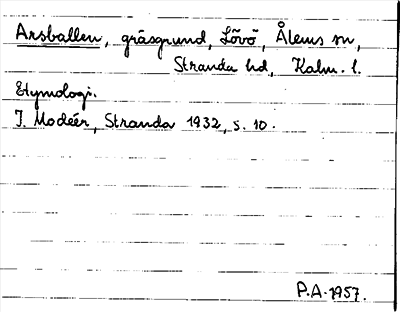 Arsballen, gräsgrund, Lövö, Ålems sn,
Stranda hd, Kalm. l.
Etymologi.
I. Modéer, Stranda 1932, s. 10.
P.A. 1957.